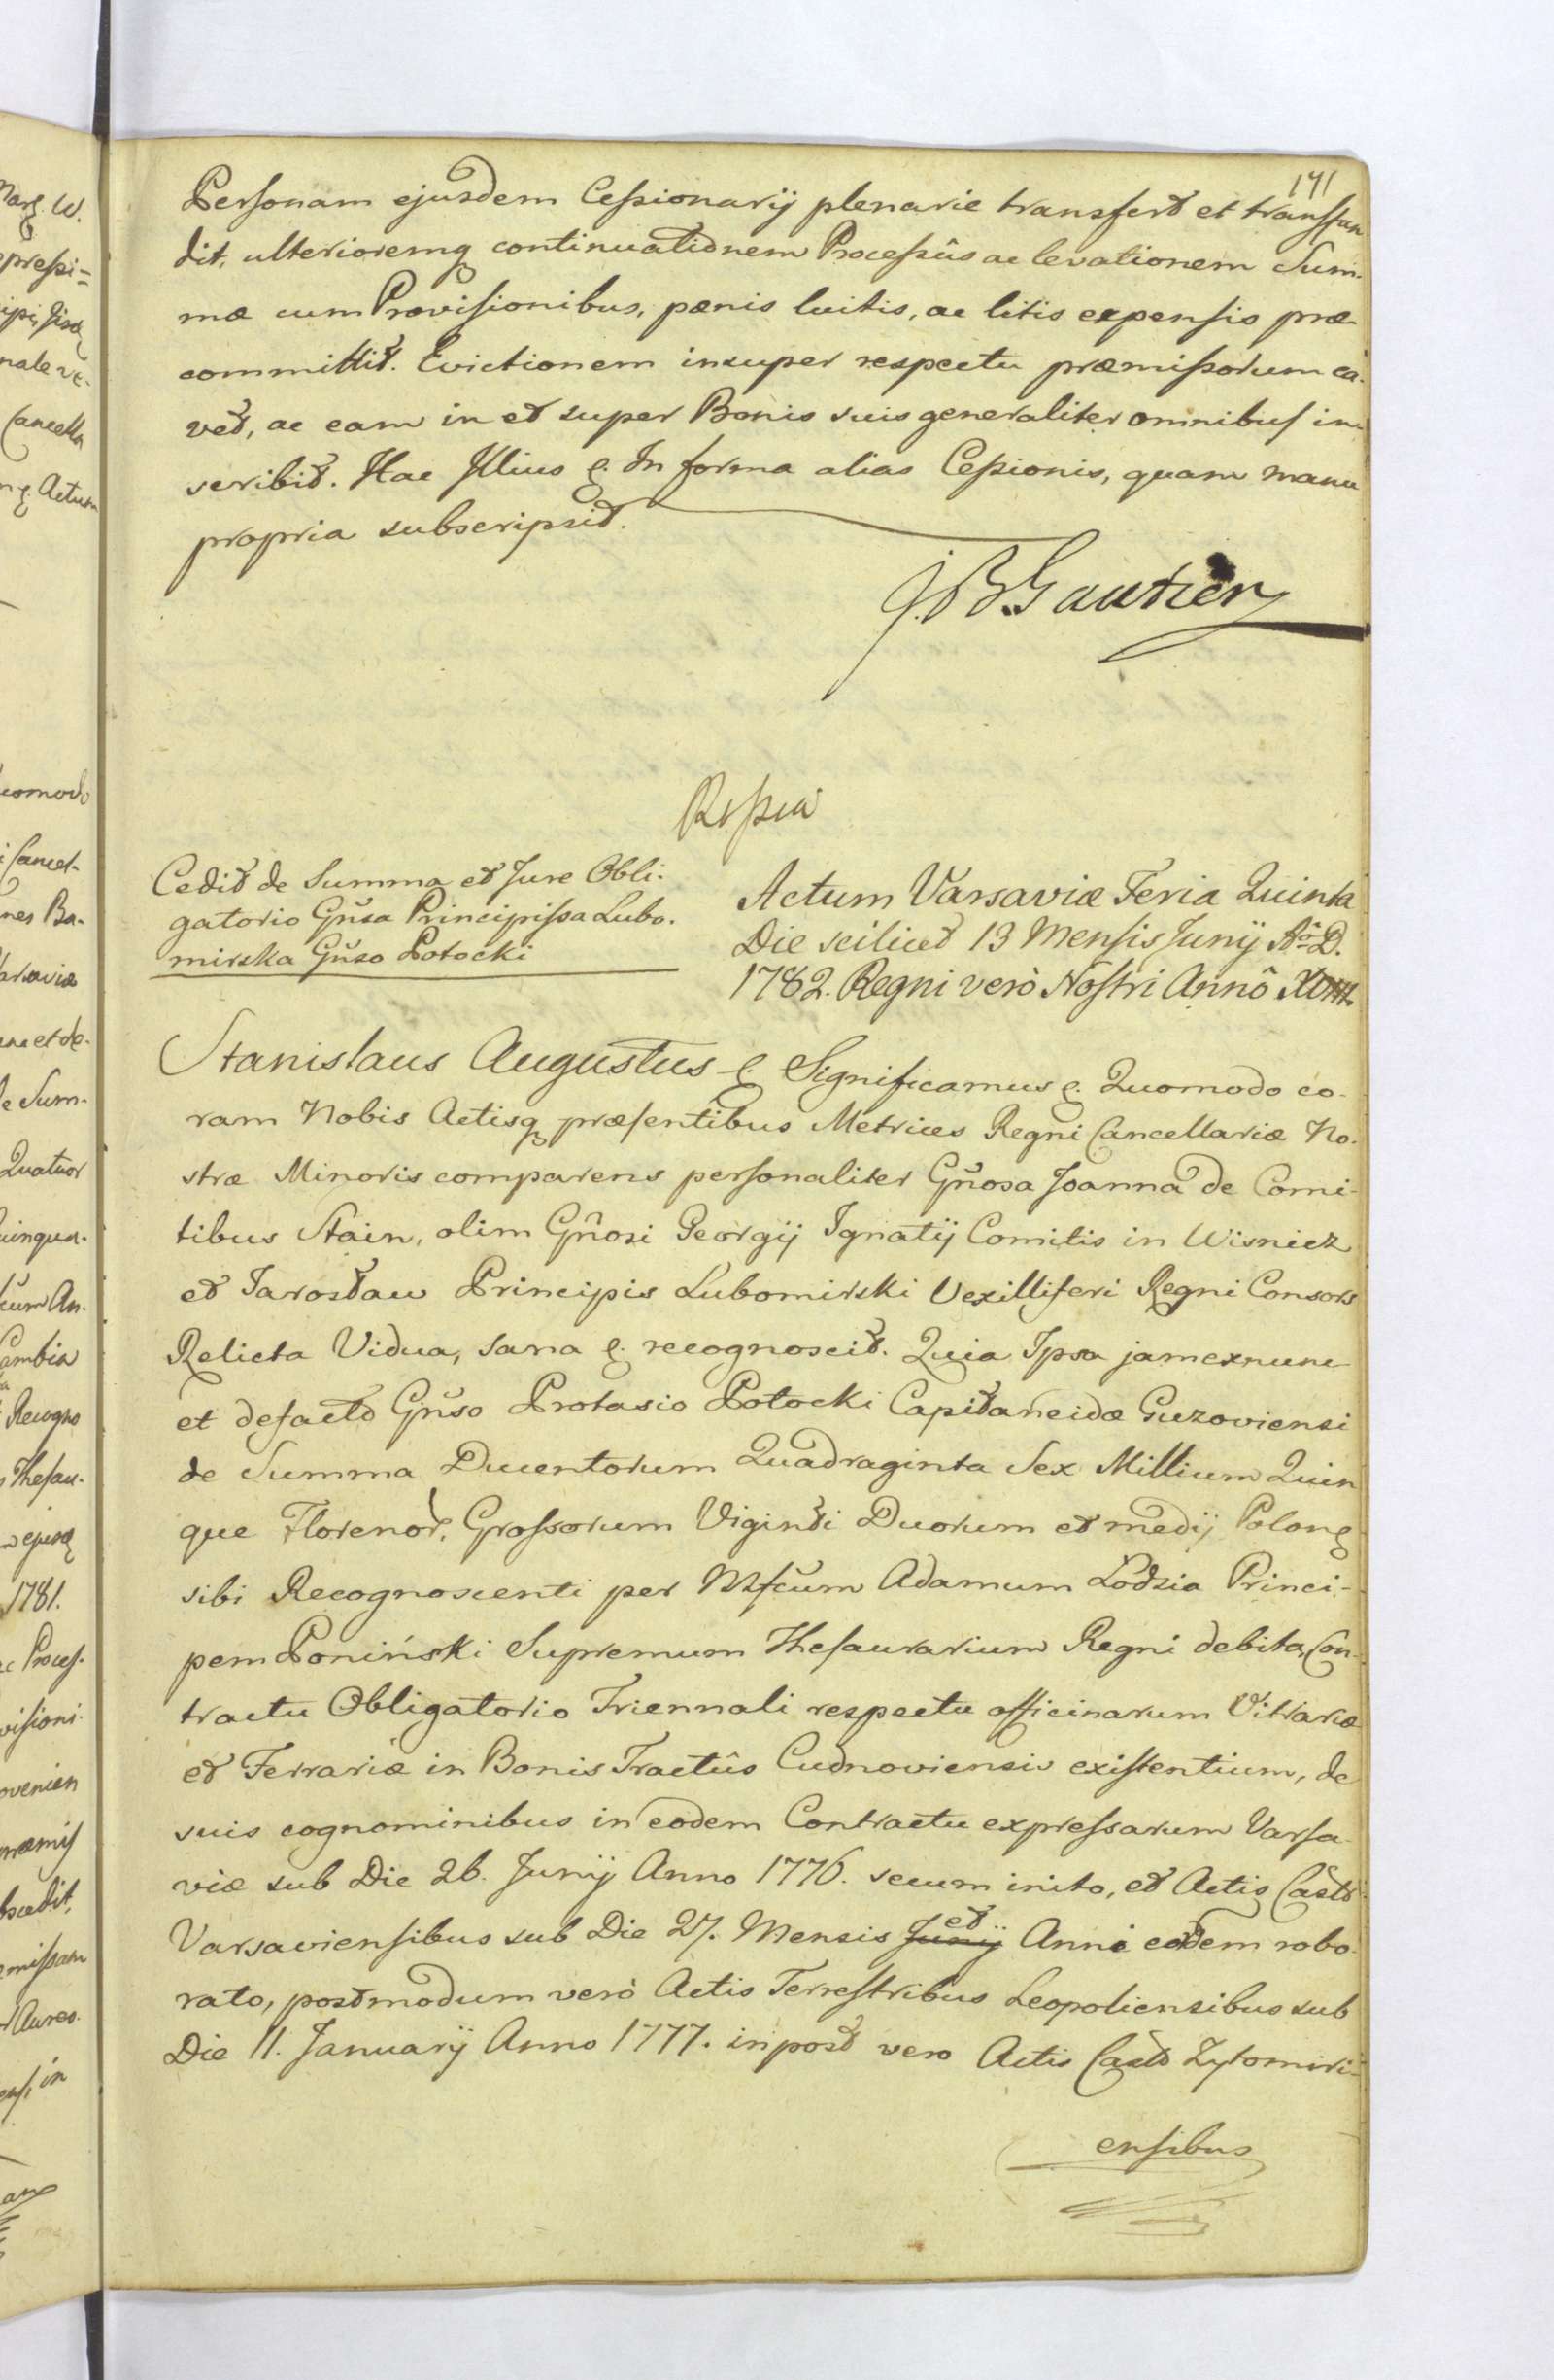 171
Personam ejusdem Cessionarij plenarie transfert et transfun
dit, ulterioremq continuationem Processûs ac levationem Sum-
mæ cum Provisionibus, pænis luitis, ac litis expensis præ
committit. Evictionem insuper respectu præmissorum ca-
vet, ac eam in et super Bonis suis generaliter omnibus in-
scribit. Hac Illius &. In forma alias Cessionis, quam manu
propria subscripsit.
J.B. Gautier
Cedit de Summa et Jure Obli-
gatorio Gñsa Principissa Lubo-
mirska Gñso Potocki
Actum Varsaviæ Feria Quinta
Die scilicet 13 Mensis Junij Aô D.
1782. Regni verò Nostri Annô XVIII.
Stanislaus Augustus &. Significamus &. Quomodo co-
ram Nobis Actisq præsentibus Metrices Regni Cancellariæ No-
stræ Minoris comparens personaliter Gñosa Joanna de Comi-
tibus Stain, olim Gñosi Georgij Ignatij Comitis in Wisnicz
et Jarostaw Principis Lubomirski Vexilliferi Regni Consors
Relicta Vidua, sana &. recognoscit. Quia Ipsa jam exnunc
et defacto Gñso Protasio Potocki Capitaneidæ Guzoviensi
de Summa Ducentorum Quadraginta Sex Millium Quin
que Florenor, Grossorum Viginti Duorum et medij Polon
sibi Recognoscenti per Mfcum Adamum Lodzia Princi-
pem Poniński Supremum Thesaurarium Regni debita, Con-
tractu Obligatorio Triennali respectu officinarum Vitrariæ
et Ferrariæ in Bonis Tractûs Cudnoviensis existentium, de
suis cognominibus in eodem Contractu expressarum Varsa-
viæ sub Die 26. Junij Anno 1776. secum inito, et Actis Castr
Varsaviensibus sub Die 27. Mensis Junij et Anni eodem robo-
rato, postmodum verò Actis Terrestribus Leopoliensibus sub
Die 11. Januarij Anno 1777. inpost vero Actis Castr Zytomiri-
ensibus